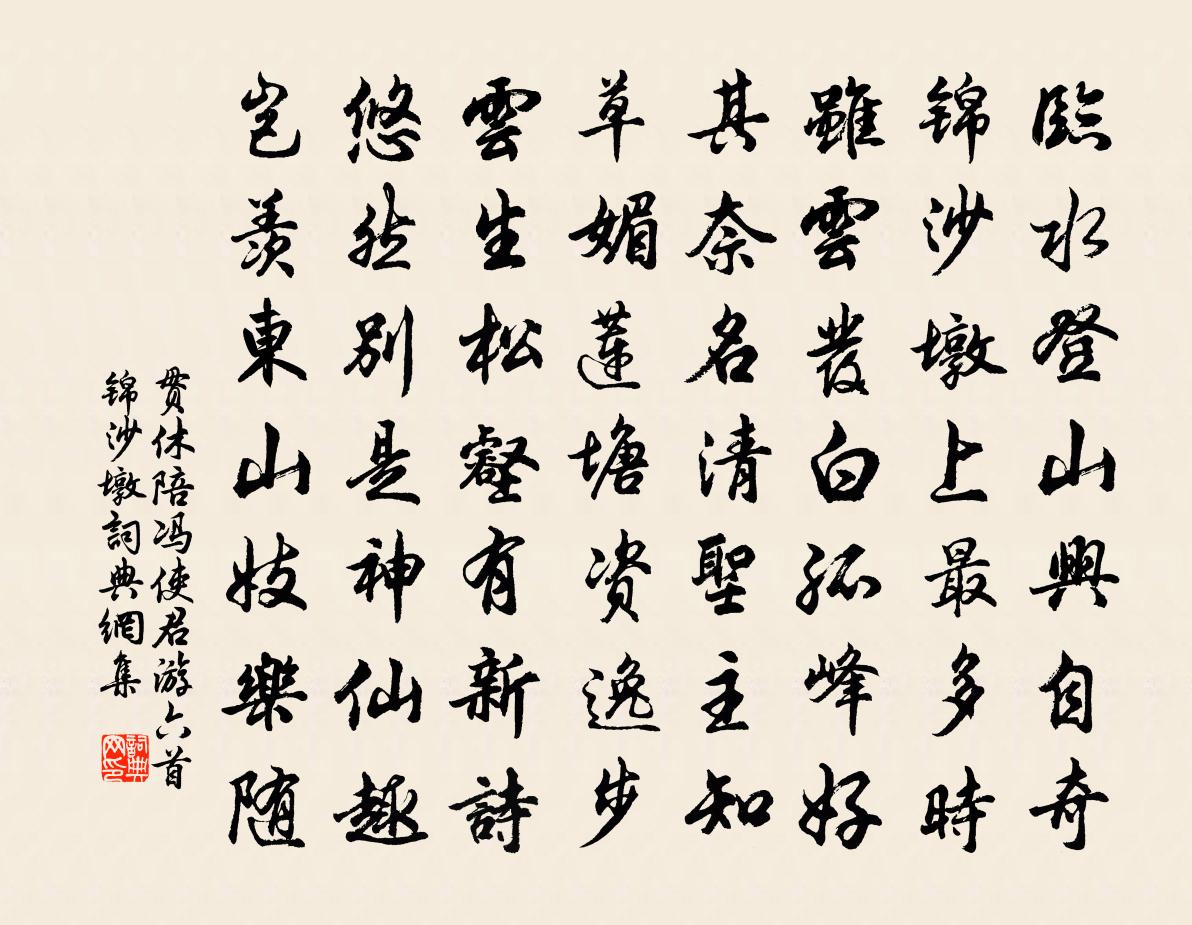 臨水登山興自奇
錦沙墩上最多時
雖雲發白孤峰好
其奈名清聖主知
草媚蓮塘資逸步
雲生松壑有新詩
悠然別是神仙趣
豈羨東山妓樂隨
貫休陪馮使君游六首
錦沙墩詞典網集
詞典網印